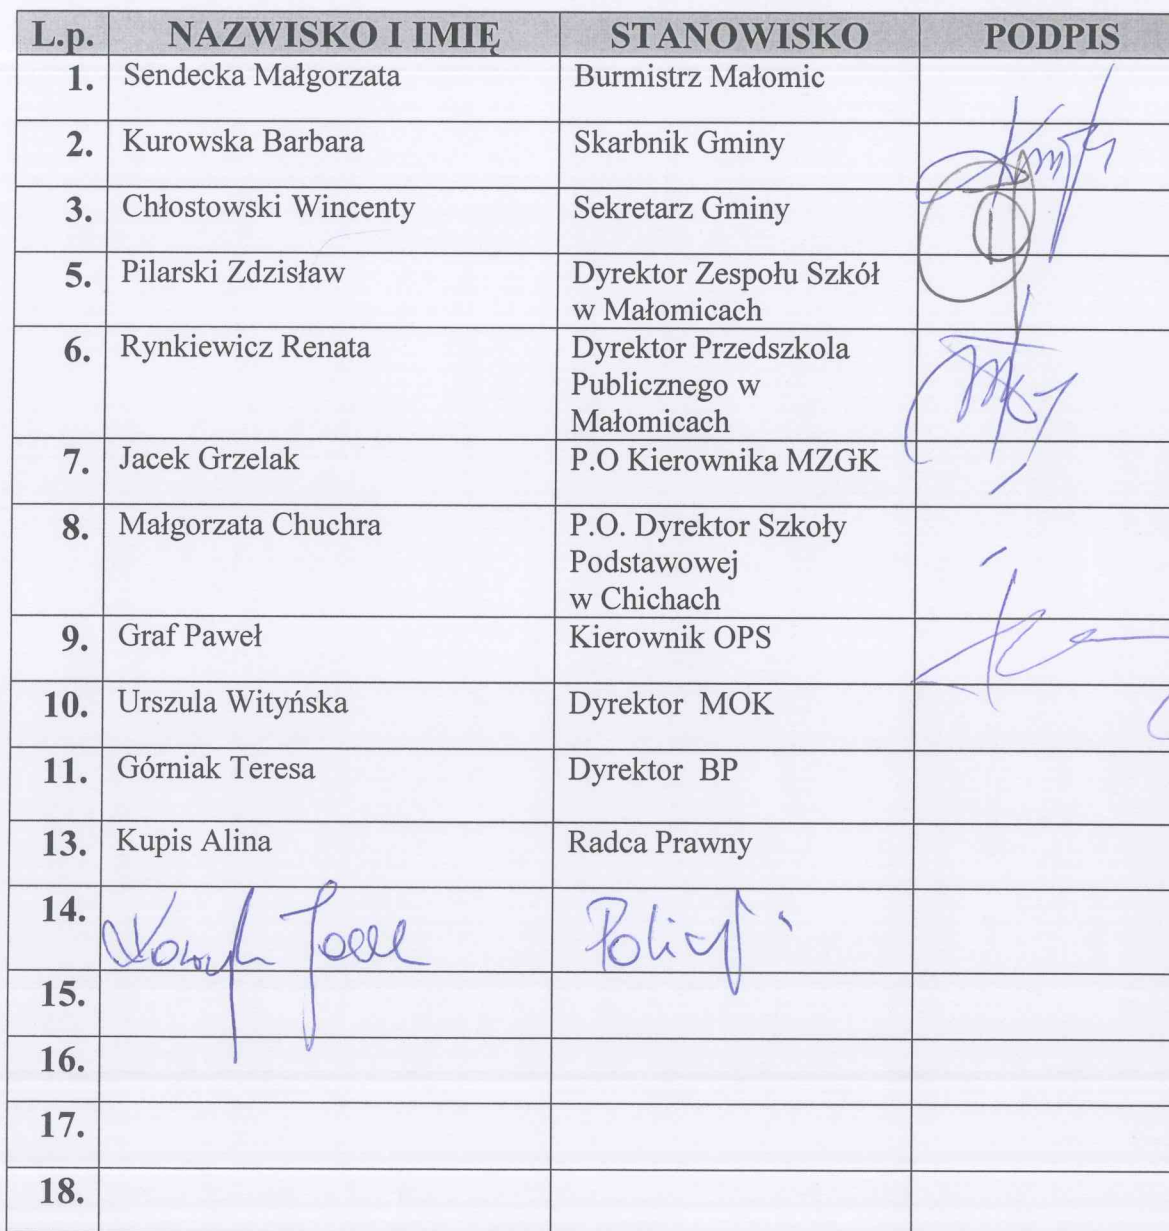 L.p. NAZWISKO I IMIĘ STANOWISKO PODPIS
1. Sendecka Małgorzata Burmistrz Małomic
2. Kurowska Barbara Skarbnik Gminy
3. Chłostowski Wincenty Sekretarz Gminy
5. Pilarski Zdzisław Dyrektor Zespołu Szkół
w Małomicach
6. Rynkiewicz Renata Dyrektor Przedszkola
Publicznego w
Małomicach
7. Jacek Grzelak P.O Kierownika MZGK
8. Małgorzata Chuchra P.O. Dyrektor Szkoły
Podstawowej
w Chichach
9. Graf Paweł Kierownik OPS
10. Urszula Wityńska Dyrektor MOK
11. Górniak Teresa Dyrektor BP
13. Kupis Alina Radca Prawny
14.
15.
16.
17.
18.